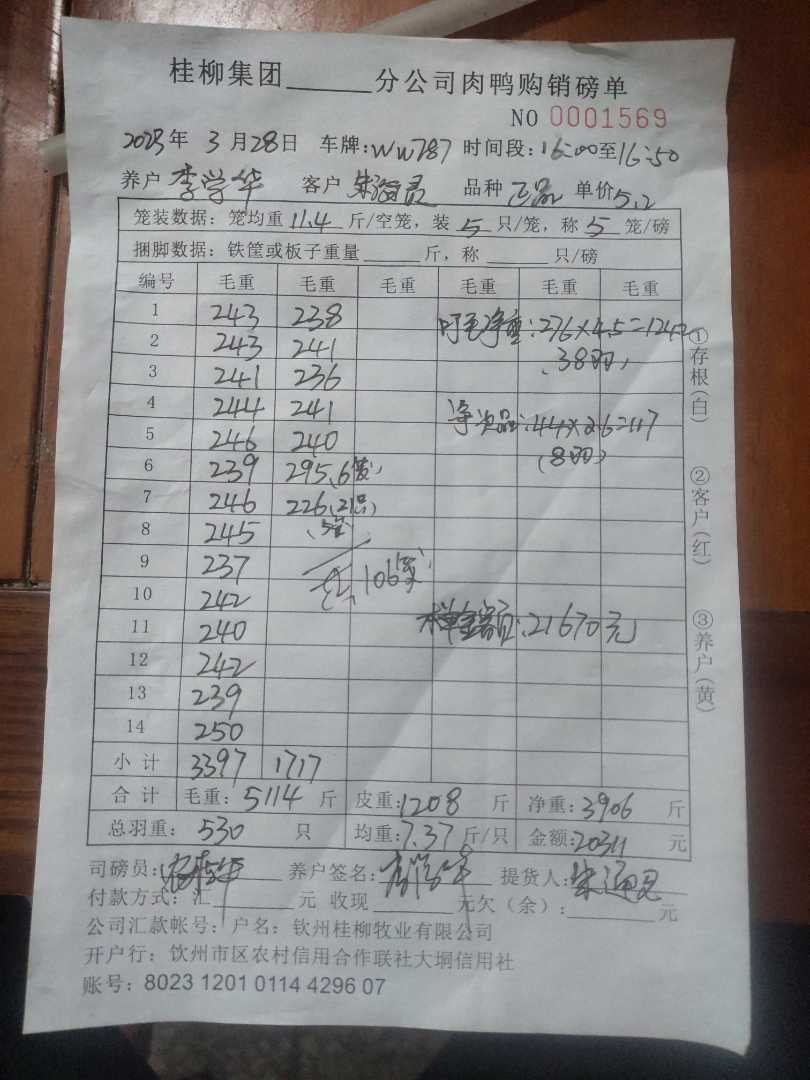 桂柳集团______分公司肉鸭购销磅单
NO 0001569
2023年 3月28日 车牌:WW787 时间段:16:00至16:50
养户 李学华 客户 朱海灵 品种 正品 单价5.2
笼装数据: 笼均重 11.4 斤/空笼, 装 5 只/笼, 称 5 笼/磅
捆脚数据: 铁筐或板子重量______斤, 称______只/磅
编号 毛重 毛重 毛重 毛重 毛重 毛重
1 243 238
2 243 241
:276×4.5=1242
(38羽)
3 241 236
4 244 241
净次品:44×2.6=117
(8羽)
5 246 240
6 239 295
7 246 226(21只)
8 245
9 237
106
10 242
11 240
单金额:21670元
12 242
13 239
14 250
小计 3397 1717
合计 毛重:5114斤 皮重:1208斤 净重:3906斤
总羽重:530只 均重:7.37斤/只 金额:20311元
司磅员: 养户签名: 提货人:
付款方式:汇______元 收现______元欠(余):______元
公司汇款帐号: 户名: 钦州桂柳牧业有限公司
开户行: 钦州市区农村信用合作联社大垌信用社
账号: 8023 1201 0114 4296 07
①存根(白)
②客户(红)
③养户(黄)